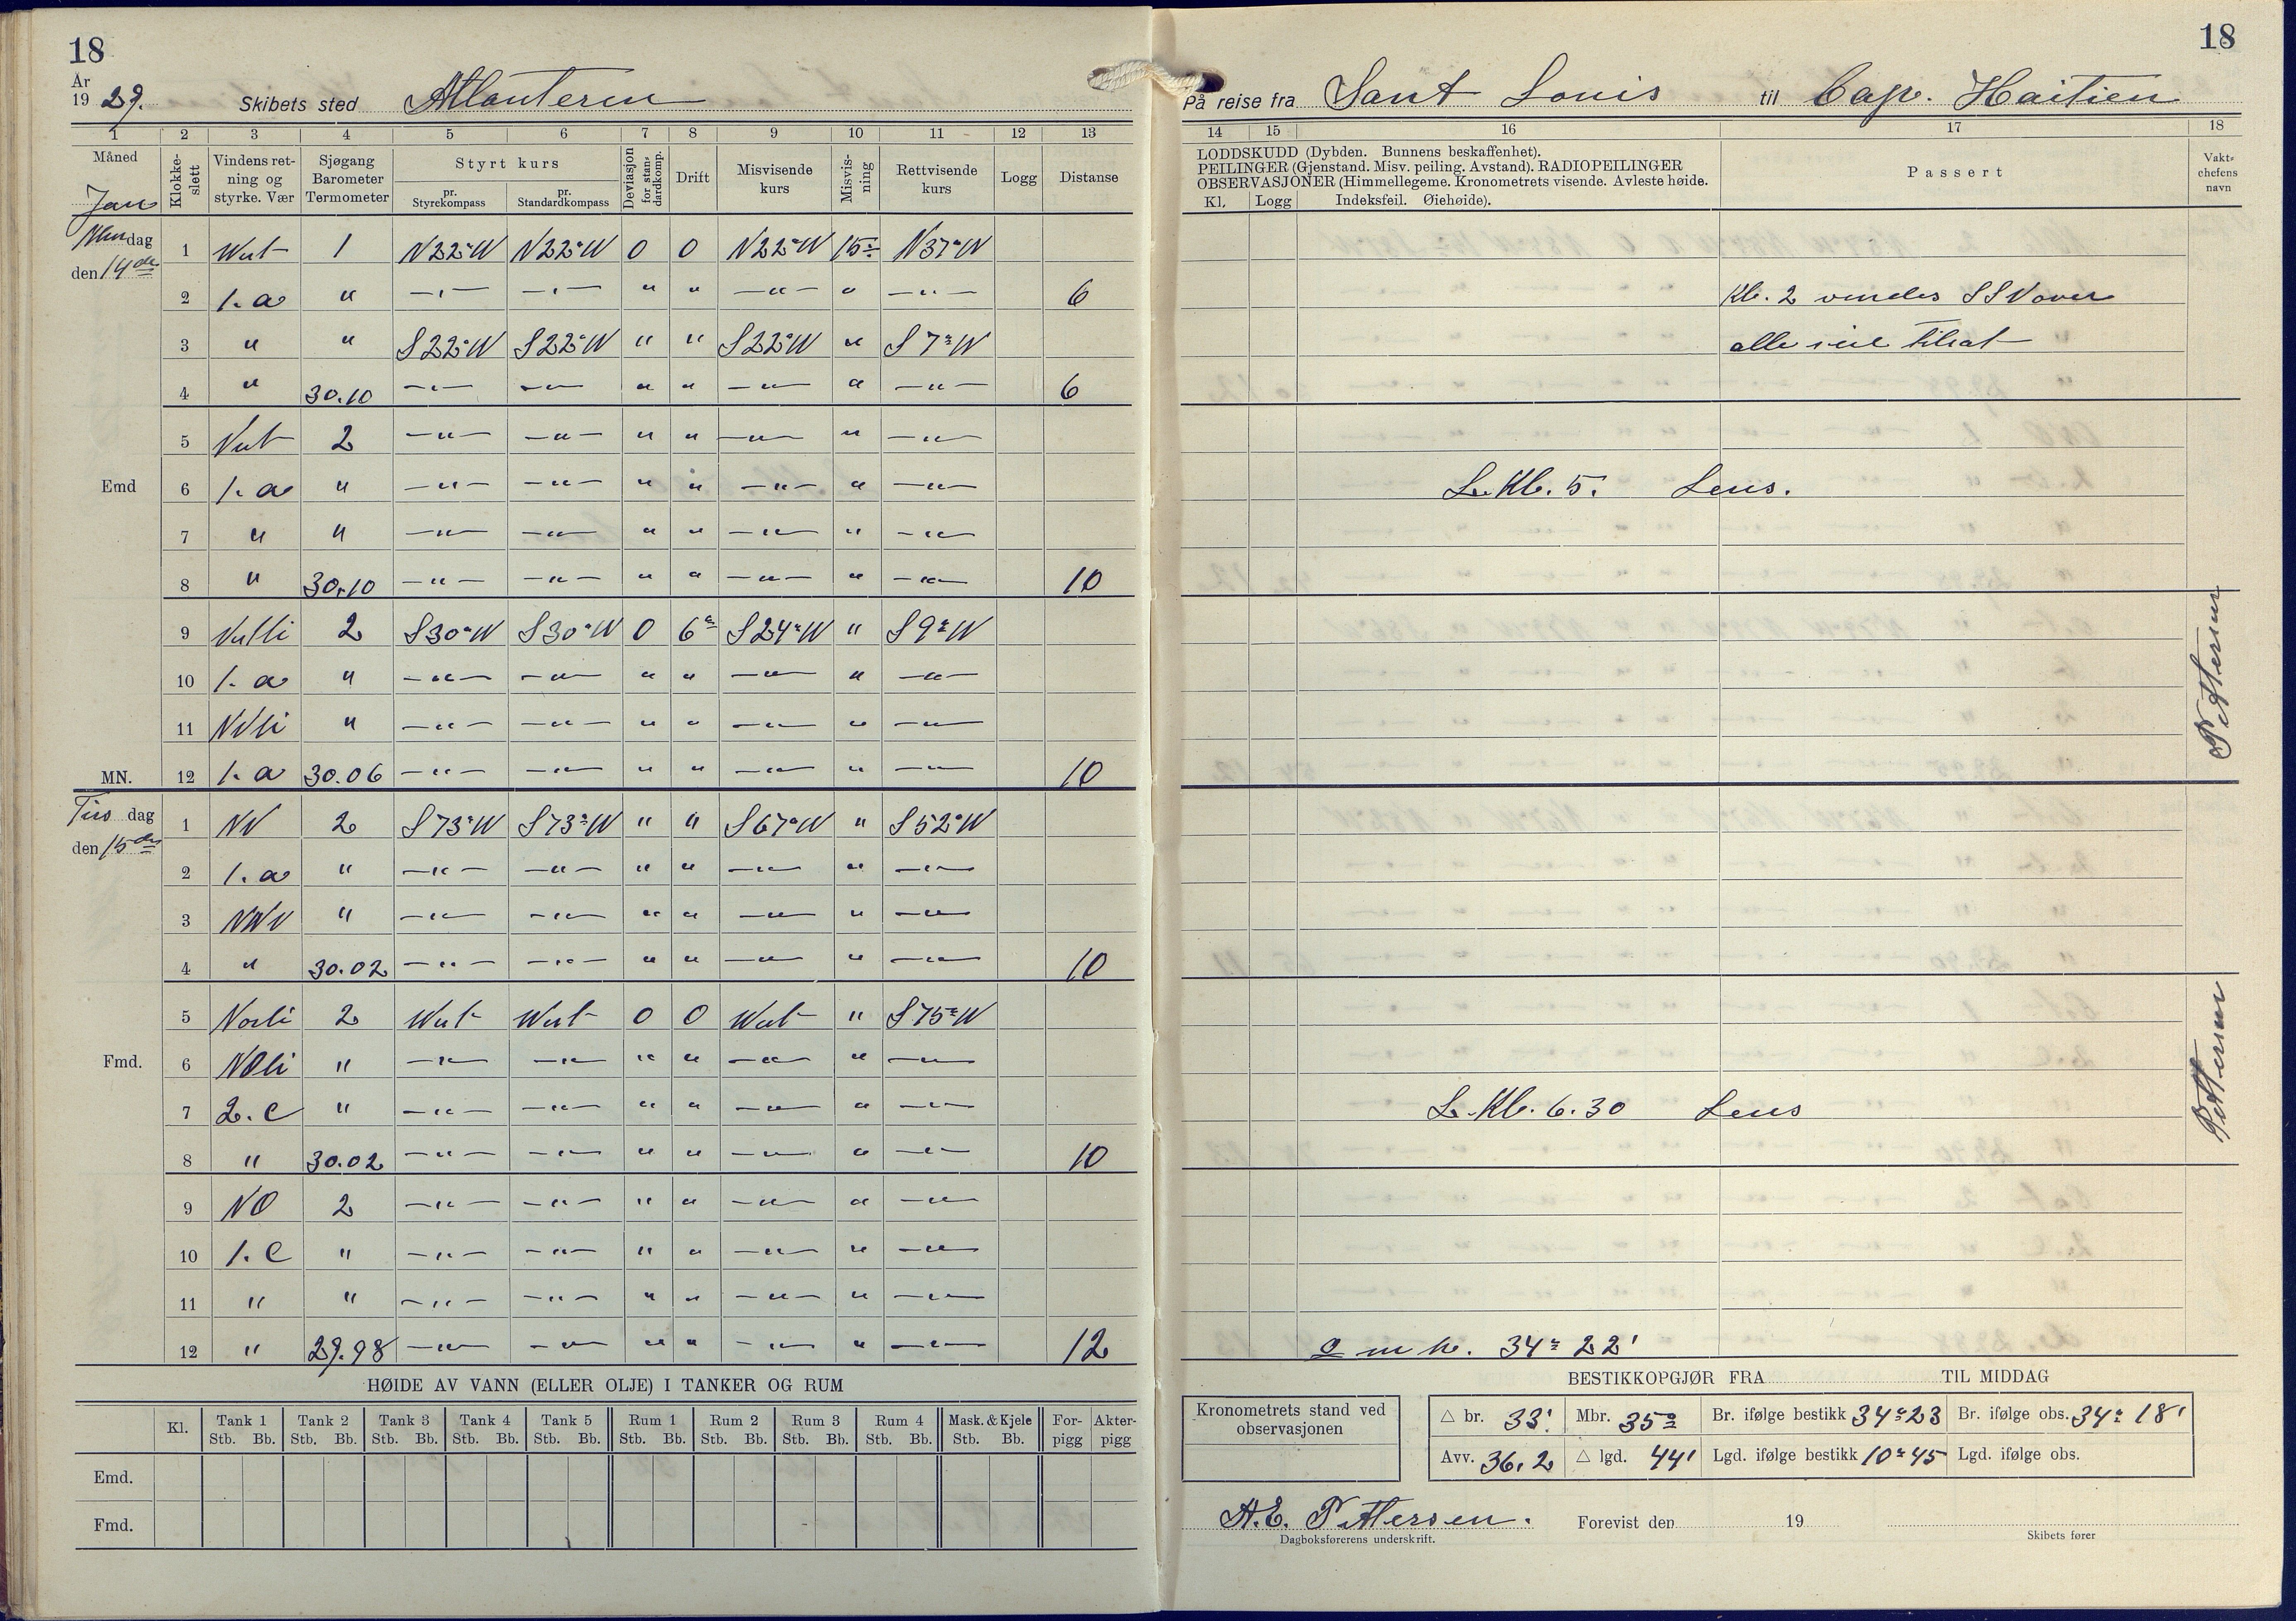 18
År
19 29.
Skibets sted Atlanteren
1 2 3 4 5 6 7 8 9 10 11 12 13
Måned
Jan
Klokkeslett
Vindens retning og styrke. Vær
Sjøgang Barometer Termometer
Styrt kurs
pr. Styrekompass
pr. Standardkompass
Deviasjon for standardkomp.
Drift
Misvisende kurs
Misvisning
Rettvisende kurs
Logg
Distanse
Mandag
den 14de
1 West 1 N22°W N22°W 0 0 N22°W 15° N37°W
2 1. a " —"— —"— " " —"— " —"— 6
3 " " S22°W S22°W " " S22°W " S7°W
4 " 30.10 —"— —"— " " —"— " —"— 6
5 Vest 2 —"— —"— " " —"— " —"—
Emd 6 1. a " —"— —"— " " —"— " —"—
7 " " —"— —"— " " —"— " —"—
8 " 30.10 —"— —"— " " —"— " —"— 10
9 Vestli 2 S30°W S30°W 0 6° S24°W " S9°W
10 1. a " —"— —"— " " —"— " —"—
11 NVli " —"— —"— " " —"— " —"—
MN. 12 1. a 30.06 —"— —"— " " —"— " —"— 10
Tirsdag
den 15de
1 NV 2 S73°W S73°W " " S67°W " S52°W
2 1. a " —"— —"— " " —"— " —"—
3 NNV " —"— —"— " " —"— " —"—
4 " 30.02 —"— —"— " " —"— " —"— 10
5 Nordli 2 West West 0 0 West " S75°W
Fmd. 6 NOli " —"— —"— " " —"— " —"—
7 2. C " —"— —"— " " —"— " —"—
8 " 30.02 —"— —"— " " —"— " —"— 10
9 NO 2 —"— —"— " " —"— " —"—
10 1. C " —"— —"— " " —"— " —"—
11 " " —"— —"— " " —"— " —"—
12 " 29.98 —"— —"— " " —"— " —"— 12
HØIDE AV VANN (ELLER OLJE) I TANKER OG RUM
Kl. Tank 1 Tank 2 Tank 3 Tank 4 Tank 5 Rum 1 Rum 2 Rum 3 Rum 4 Mask. & Kjele For-pigg Akter-pigg
Stb. Bb. Stb. Bb. Stb. Bb. Stb. Bb. Stb. Bb. Stb. Bb. Stb. Bb. Stb. Bb. Stb. Bb. Stb. Bb.
Emd.
Fmd.
18
På reise fra Sant Louis til Cap. Haitien
14 15 16 17 18
LODDSKUDD (Dybden. Bunnens beskaffenhet).
PEILINGER (Gjenstand. Misv. peiling. Avstand). RADIOPEILINGER
OBSERVASJONER (Himmellegeme. Kronometrets visende. Avleste høide.
Kl. Logg Indeksfeil. Øiehøide).
Passert
Vaktchefens navn
Kl. 2 vendes SSV over
alle seil tilsat
L. Kl. 5. Lens.
Pettersen
L. Kl. 6.30 Lens
Pettersen
m h. 34° 22'
BESTIKKOPGJØR FRA TIL MIDDAG
Kronometrets stand ved observasjonen
△ br. 33' Mbr. 35° Br. ifølge bestikk 34°23 Br. ifølge obs. 34° 18'
Avv. 36.2 △ lgd. 44' Lgd. ifølge bestikk 10°45 Lgd. ifølge obs.
A.E. Pettersen. Forevist den 19
Dagboksførerens underskrift. Skibets fører